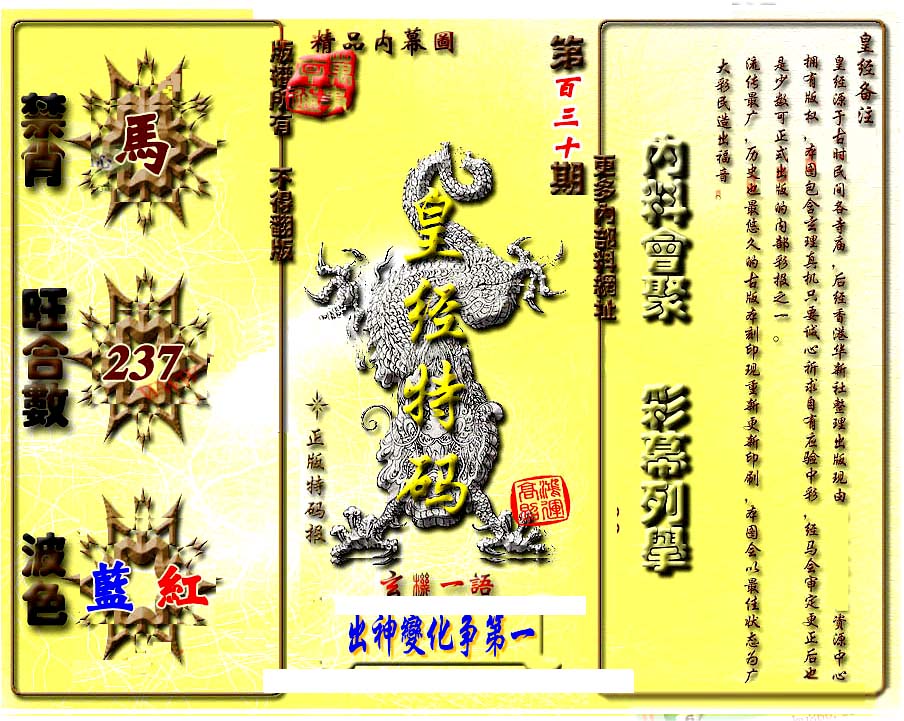 皇经备注
皇经源于古时民间各寺庙，后经香港华新社整理出版现由 资源中心
拥有版权，本图包含玄理真机只要诚心祈求自有应验中彩，经马会审定更正后也
是少数可正式出版的内部彩报之一。
流传最广，历史也最悠久的古版本刻印现重新更新印刷，本图会以最佳状态为广
大彩民造出福音
內料會聚
彩幕列舉
更多內部料網址
第百三十期
精品內幕圖
皇经特码
鴻運
高照
正版特码报
玄機一語
出神變化争第一
版權所有 不得翻版
禁肖
馬
旺合數
237
波色
藍 紅